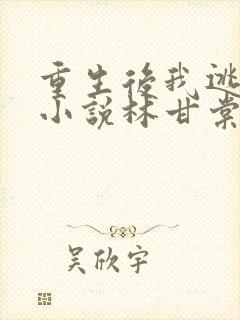 重生後我逃
小說林甘棠
吴欣宇